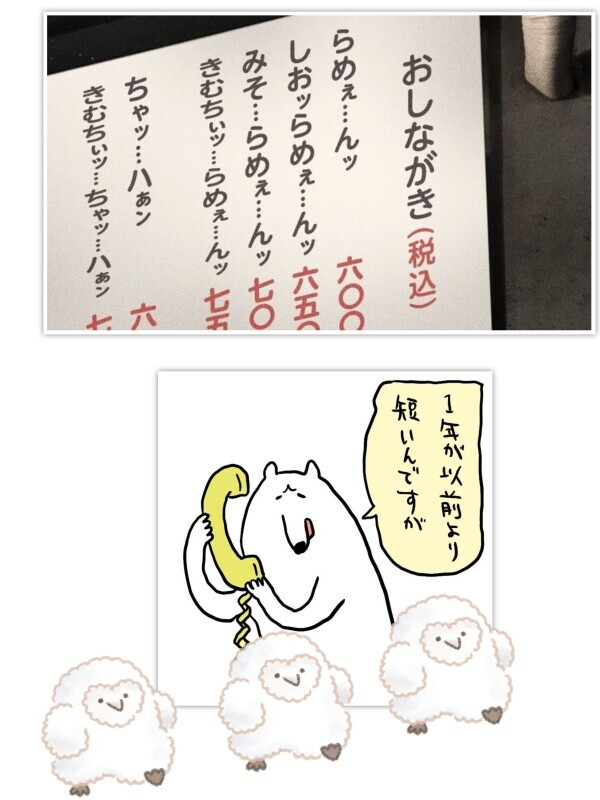 おしながき(税込)
らめぇ…んッ 六〇〇
しおッらめぇ…んッ 六五〇
みそ…らめぇ…んッ 七〇
きむちぃッ…らめぇ…んッ 七五
ちゃッ…ハぁン 六
きむちぃッ…ちゃッ…ハぁン 七
1年が以前より
短いんですが